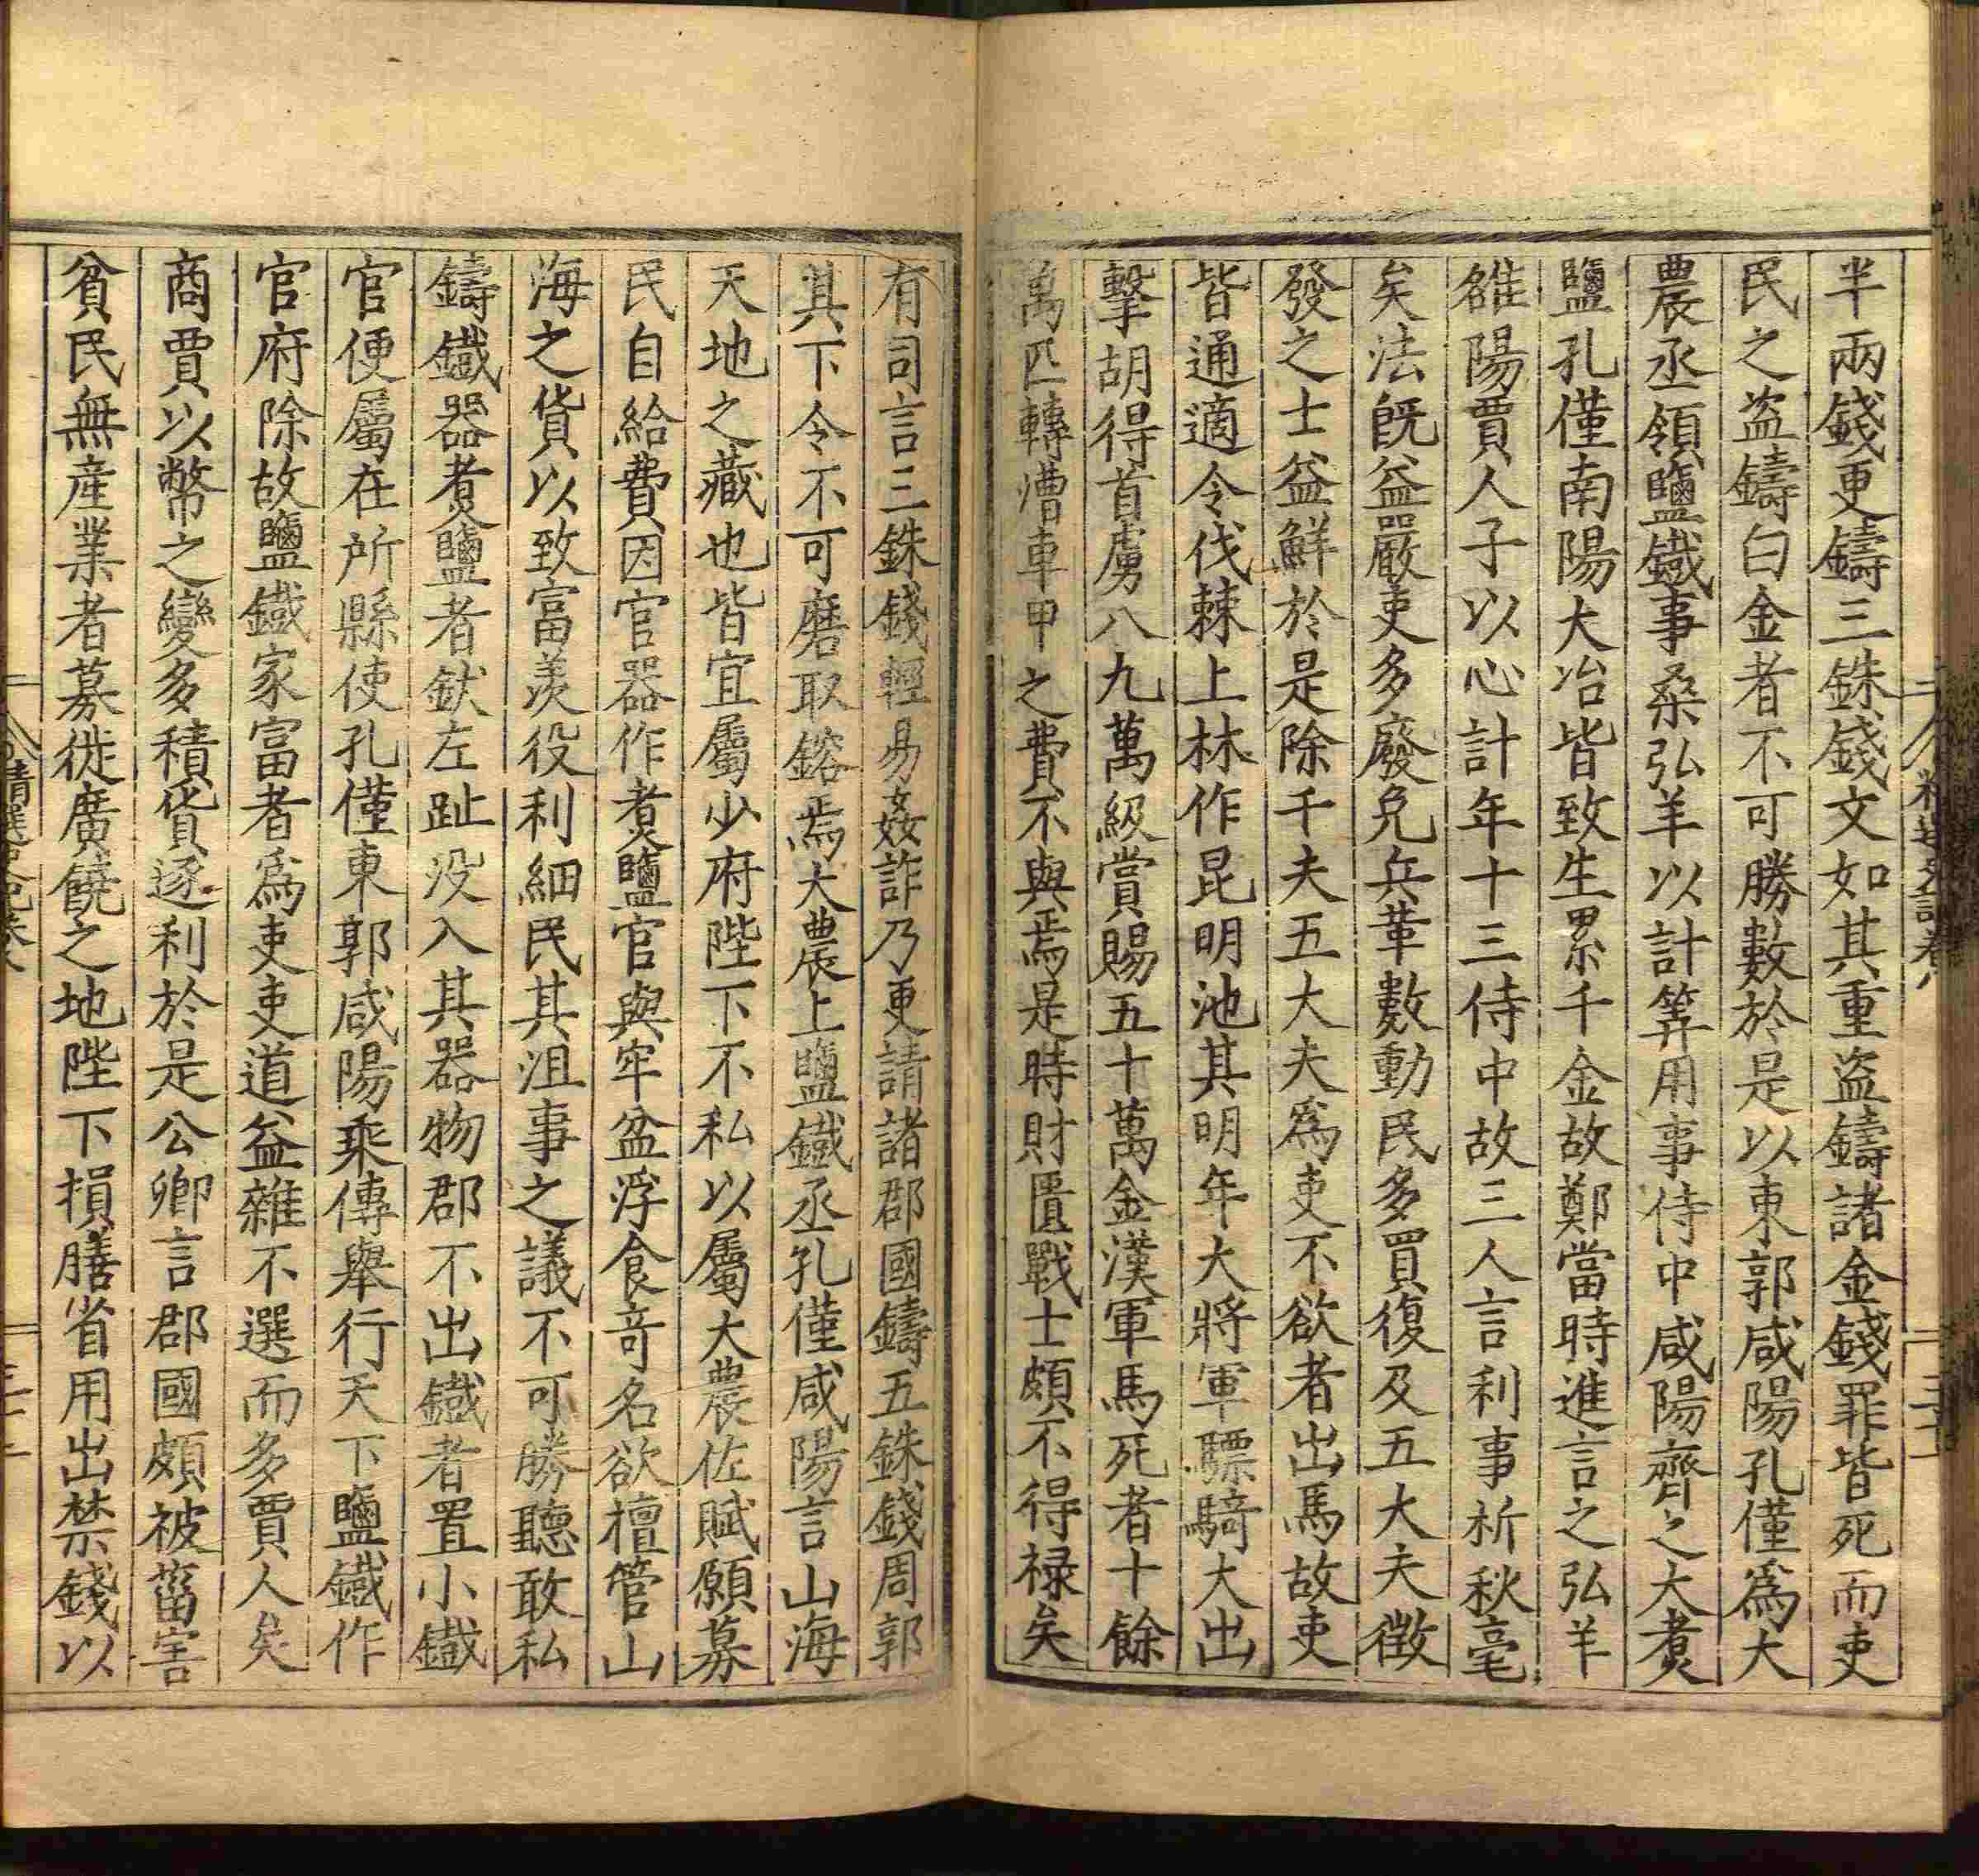 半兩錢更鑄三銖錢文如其重盗鑄諸金錢罪皆死而吏
民之盗鑄白金者不可勝數於是以東郭咸陽孔僅爲大
農丞領鹽鐵事桑弘羊以計筭用事侍中咸陽齊之大煑
鹽孔僅南陽大冶皆致生累千金故鄭當時進言之弘羊
雒陽賈人子以心計年十三侍中故三人言利事析秋毫
矣法旣益嚴吏多廢免兵革數動民多買復及五大夫徵
發之士益鮮於是除千夫五大夫爲吏不欲者出馬故吏
皆通適令伐棘上林作昆明池其明年大將軍驃騎大出
擊胡得首虜八九萬級賞賜五十萬金漢軍馬死者十餘
萬匹轉漕車甲之費不與焉是時財匱戰士頗不得禄矣
有司言三銖錢輕易姦詐乃更請諸郡國鑄五銖錢周郭
其下令不可磨取鎔焉大農上鹽鐵丞孔僅咸陽言山海
天地之藏也皆宜屬少府陛下不私以屬大農佐賦願募
民自給費因官器作煑鹽官與牢盆浮食竒名欲檀管山
海之貨以致富羨役利細民其沮事之議不可勝聽敢私
鑄鐵器煑鹽者釱左趾没入其器物郡不出鐵者置小鐵
官便屬在所縣使孔僅東郭咸陽乘傳舉行天下鹽鐵作
官府除故鹽鐵家富者爲吏吏道益雜不選而多賈人矣
商賈以幣之變多積貨逐利於是公卿言郡國頗被菑害
貧民無産業者募徙廣饒之地陛下損膳省用出禁錢以